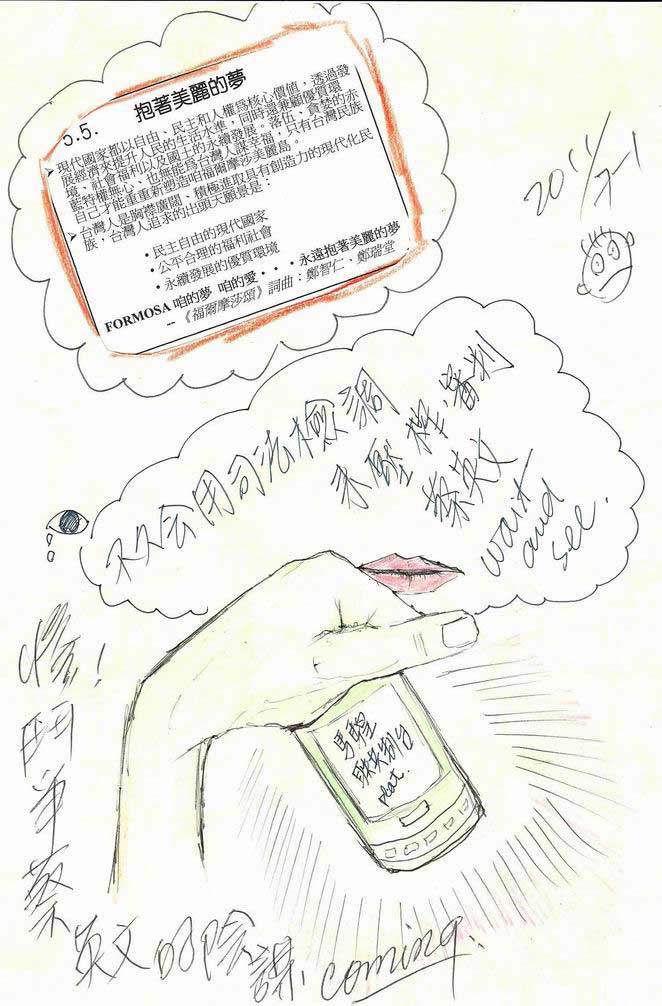 5.5. 抱著美麗的夢
➤現代國家都以自由、民主和人權為核心價值，透過發
展經濟來提升人民的生活水準，同時還兼顧優質環
境、社會福利以及國土的永續發展。落伍、貪婪的赤
藍特權無心、也無能為台灣人謀幸福，只有台灣民族
自己才能重重新塑造咱福爾摩莎美麗島。
➤台灣人是胸襟廣闊、積極進取具有創造力的現代化民
族，台灣人追求的出頭天願景是：
•民主自由的現代國家
•公平合理的福利社會
•永續發展的優質環境
FORMOSA 咱的夢 咱的愛・・・永遠抱著美麗的夢
--《福爾摩莎頌》詞曲：鄭智仁、鄭瑞堂
2011
7-1
不久会用司法檢調
審判
蔡英文
wait
and
see.
馬
plot.
鬥爭蔡
英文的陰謀, coming.